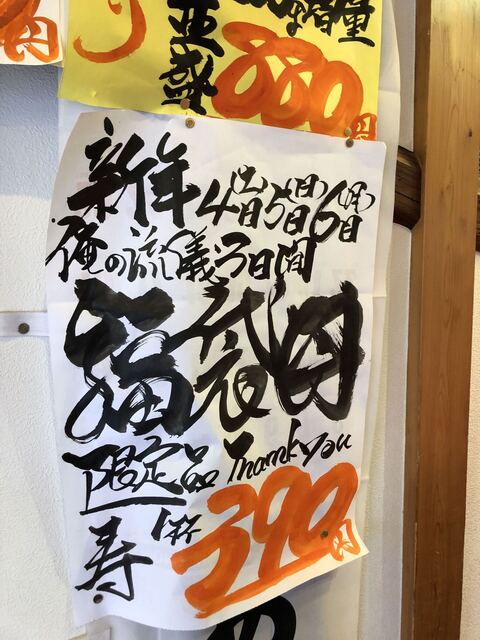 盛
880円
新年 4日(土)5日(日)6日(月)
俺の流儀3日間
福袋肉
限定品 Thank you
寿 1杯 390円